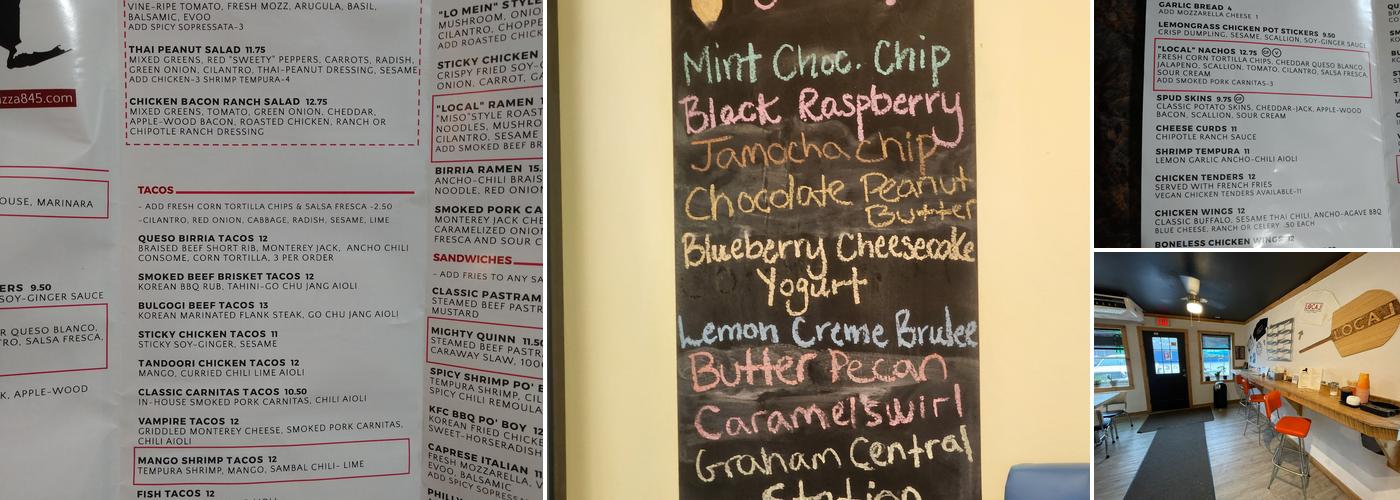 VINE-RIPE TOMATO, FRESH MOZZ, ARUGULA, BASIL,
BALSAMIC, EVOO
ADD SPICY SOPRESSATA-3
THAI PEANUT SALAD 11.75
MIXED GREENS, RED "SWEETY" PEPPERS, CARROTS, RADISH,
GREEN ONION, CILANTRO, THAI-PEANUT DRESSING, SESAME
ADD CHICKEN-3 SHRIMP TEMPURA-4
CHICKEN BACON RANCH SALAD 12.75
MIXED GREENS, TOMATO, GREEN ONION, CHEDDAR,
APPLE-WOOD BACON, ROASTED CHICKEN, RANCH OR
CHIPOTLE RANCH DRESSING
zza845.com
OUSE, MARINARA
ERS 9.50
SOY-GINGER SAUCE
R QUESO BLANCO,
TRO, SALSA FRESCA,
K, APPLE-WOOD
TACOS
- ADD FRESH CORN TORTILLA CHIPS & SALSA FRESCA -2.50
-CILANTRO, RED ONION, CABBAGE, RADISH, SESAME, LIME
QUESO BIRRIA TACOS 12
BRAISED BEEF SHORT RIB, MONTEREY JACK, ANCHO CHILI
CONSOME, CORN TORTILLA, 3 PER ORDER
SMOKED BEEF BRISKET TACOS 12
KOREAN BBQ RUB, TAHINI-GO CHU JANG AIOLI
BULGOGI BEEF TACOS 13
KOREAN MARINATED FLANK STEAK, GO CHU JANG AIOLI
STICKY CHICKEN TACOS 11
STICKY SOY-GINGER, SESAME
TANDOORI CHICKEN TACOS 12
MANGO, CURRIED CHILI LIME AIOLI
CLASSIC CARNITAS TACOS 10.50
IN-HOUSE SMOKED PORK CARNITAS, CHILI AIOLI
VAMPIRE TACOS 12
GRIDDLED MONTEREY CHEESE, SMOKED PORK CARNITAS,
CHILI AIOLI
MANGO SHRIMP TACOS 12
TEMPURA SHRIMP, MANGO, SAMBAL CHILI- LIME
FISH TACOS 12
"LO MEIN" STYL
MUSHROOM, ONIO
CILANTRO, CHOPPE
ADD ROASTED CHICK
STICKY CHICKEN
CRISPY FRIED SOY-G
ONION, CARROT, GA
"LOCAL" RAMEN 1
"MISO"STYLE ROAST
NOODLES, MUSHRO
CILANTRO, SESAME
ADD SMOKED BEEF BR
BIRRIA RAMEN 15.
ANCHO-CHILI BRAIS
NOODLE, RED ONION
SMOKED PORK CA
MONTEREY JACK CHE
CARAMELIZED ONION
FRESCA AND SOUR C
SANDWICHES
- ADD FRIES TO ANY SA
CLASSIC PASTRAM
STEAMED BEEF PASTR
MUSTARD
MIGHTY QUINN 11.50
STEAMED BEEF PASTR
CARAWAY SLAW, 100
SPICY SHRIMP PO' B
TEMPURA SHRIMP, CIL
SPICY CHILI REMOULA
KFC BBQ PO' BOY 12
KOREAN FRIED CHICKE
SWEET-HORSERADISH
CAPRESE ITALIAN 11
FRESH MOZZARELLA, V
EVOO, BALSAMIC
ADD SPICY SOPRESSAT
PHILLY
Mint Choc. Chip
Black Raspberry
Jamocha chip
Chocolate Peanut
Butter
Blueberry Cheesecake
Yogurt
Lemon Creme Brulee
Butter Pecan
Caramelswirl
Graham Central
Station
GARLIC BREAD 4
ADD MOZZARELLA CHEESE 1
LEMONGRASS CHICKEN POT STICKERS 9.50
CRISP DUMPLING, SESAME, SCALLION, SOY-GINGER SAUCE
"LOCAL" NACHOS 12.75 GF V
FRESH CORN TORTILLA CHIPS, CHEDDAR QUESO BLANCO,
JALAPENO, SCALLION, TOMATO, CILANTRO, SALSA FRESCA,
SOUR CREAM
ADD SMOKED PORK CARNITAS-3
SPUD SKINS 9.75 GF
CLASSIC POTATO SKINS, CHEDDAR-JACK, APPLE-WOOD
BACON, SCALLION, SOUR CREAM
CHEESE CURDS 11
CHIPOTLE RANCH SAUCE
SHRIMP TEMPURA 11
LEMON GARLIC ANCHO-CHILI AIOLI
CHICKEN TENDERS 12
SERVED WITH FRENCH FRIES
VEGAN CHICKEN TENDERS AVAILABLE-11
CHICKEN WINGS 12
CLASSIC BUFFALO, SESAME THAI CHILI, ANCHO-AGAVE BBQ
BLUE CHEESE, RANCH OR CELERY .50 EACH
BONELESS CHICKEN WINGS 12
LOCAL